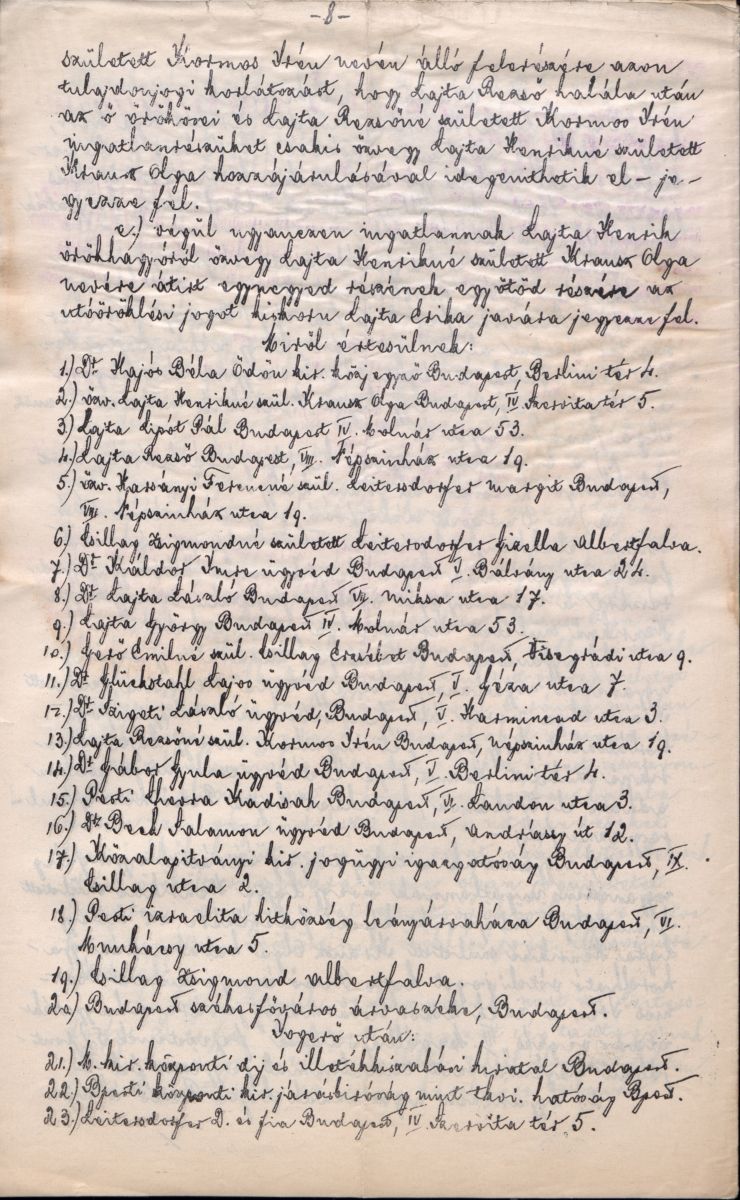 -8-
született Kormos Irén nevén álló felerészére azon
tulajdonjogi korlátozást, hogy Lajta Rezső halála után
az ő örökösei és Lajta Rezsőné született Kormos Irén
ingatlanrészüket csakis özvegy Lajta Henrikné született
Krausz Olga hozzájárulásával idegenithetik el – je-
gyezze fel.
e.) végül ugyanezen ingatlannak Lajta Henrik
örökhagyóról özvegy Lajta Henrikné született Krausz Olga
nevére átirt egynegyed részének egyötöd részére az
utóöröklési jogot kiskoru Lajta Erika javára jegyezze fel.
Miről értesülnek:
1.) Dr Hajós Béla Ödön kir. közjegyző Budapest, Berlini tér 4.
2.) özv. Lajta Henrikné szül. Krausz Olga Budapest, IV Szervita tér 5.
3.) Lajta Lipót Pál Budapest IV. Molnár utca 53.
4.) Lajta Rezső Budapest, VIII. Népszinház utca 19.
5.) özv. Harsányi Ferencné szül. Leitersdorfer Margit Budapest,
VIII. Népszinház utca 19.
6.) Csillag Zsigmondné született Leitersdorfer Gizella Albertfalva.
7.) Dr Káldor Imre ügyvéd Budapest V. Bálvány utca 24.
8.) Dr Lajta László Budapest VII. Miksa utca 17.
9.) Lajta György Budapest IV. Molnár utca 53.
10.) Gerő Emilné szül. Csillag Erzsébet Budapest, Visegrádi utca 9.
11.) Dr Glückstahl Lajos ügyvéd Budapest, V. Géza utca 7.
12.) Dr Szigeti László ügyvéd, Budapest, V. Harmincad utca 3.
13.) Lajta Rezsőné szül. Kormos Irén Budapest, Népszinház utca 19.
14.) Dr Gábor Gyula ügyvéd Budapest, V. Berlini tér 4.
15.) Pesti Chevra Kadisah Budapest, VI. Laudon utca 3.
16.) Dr Beck Salamon ügyvéd Budapest, Andrássy út 12.
17.) Közalapitványi kir. jogügyi igazgatóság Budapest, IX.
Csillag utca 2.
18.) Pesti izraelita hitközség leányárvaháza Budapest, VI.
Munkácsy utca 5.
19.) Csillag Zsigmond Albertfalva.
20) Budapest székesfőváros árvaszéke, Budapest.
Jogerő után:
21.) M. kir. központi dij és illetékkiszabási hivatal Budapest.
22.) Bpesti központi kir. járásbiróság mint tkvi. hatóság Bpest.
23.) Leitersdorfer D. és fia Budapest, IV. Szervita tér 5.